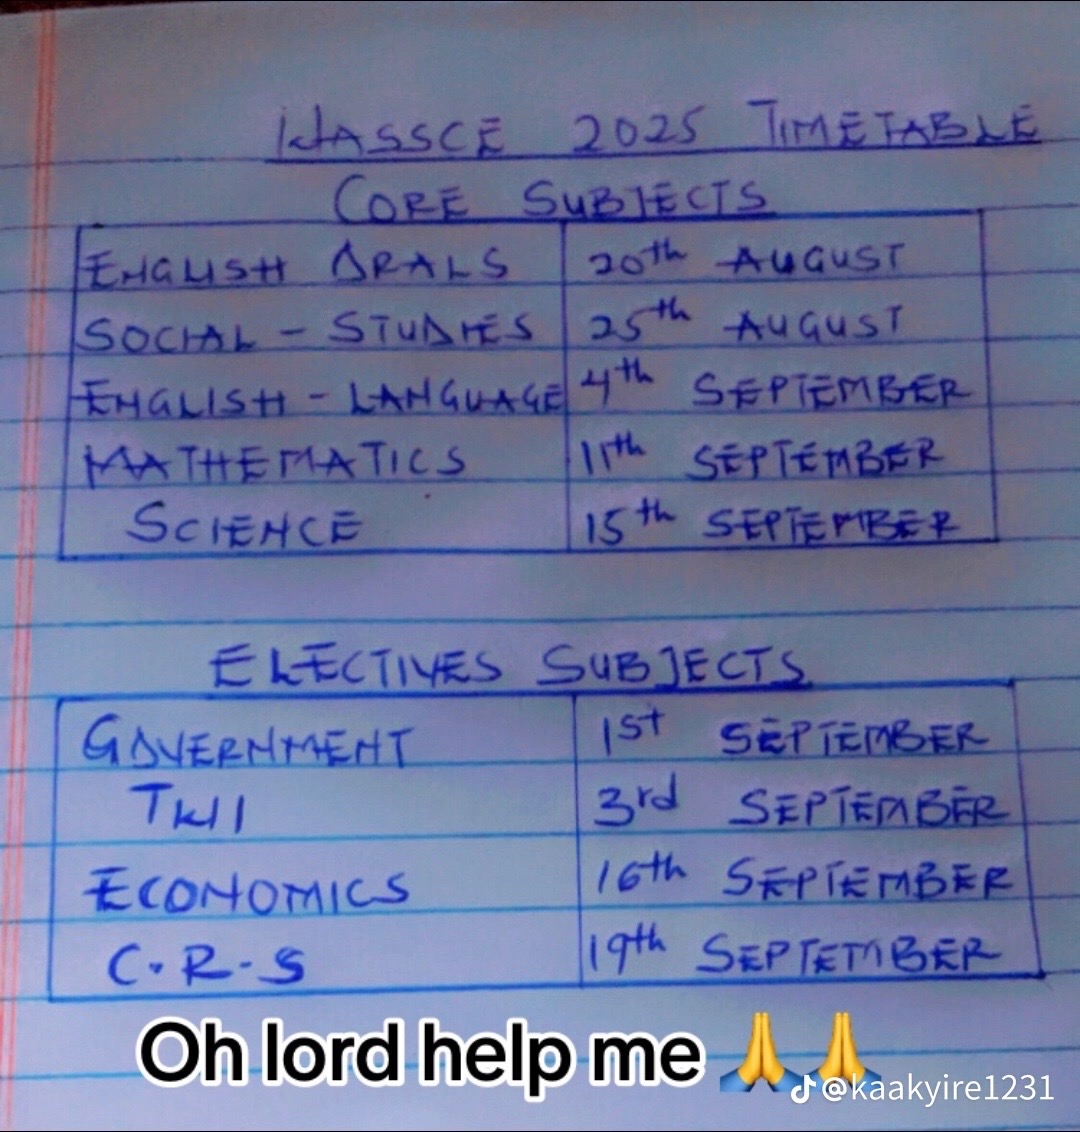 WASSCE 2025 TIMETABLE
CORE SUBJECTS
ENGLISH ORALS 20th AUGUST
SOCIAL - STUDIES 25th AUGUST
ENGLISH - LANGUAGE 4th SEPTEMBER
MATHEMATICS 11th SEPTEMBER
SCIENCE 15th SEPTEMBER
ELECTIVES SUBJECTS
GOVERNMENT 1st SEPTEMBER
TWI 3rd SEPTEMBER
ECONOMICS 16th SEPTEMBER
C.R.S 19th SEPTEMBER
Oh lord help me 🙏🙏
@kaakyire1231